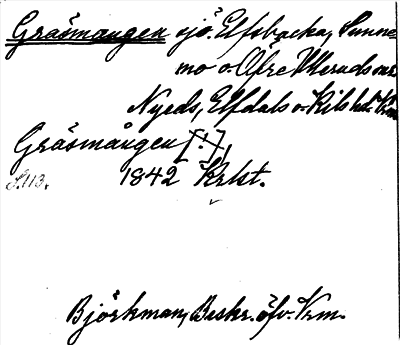 Gräsmangen sjö. Elfsbacka, Sunne
mo o. Öfre Ulleruds snr
Nyeds, Elfdals o. Kils hd. Vrm
Gräsmången [!],
S. 113. 1842 Krlst.
Björkman, Beskr. öfv. Vrm.